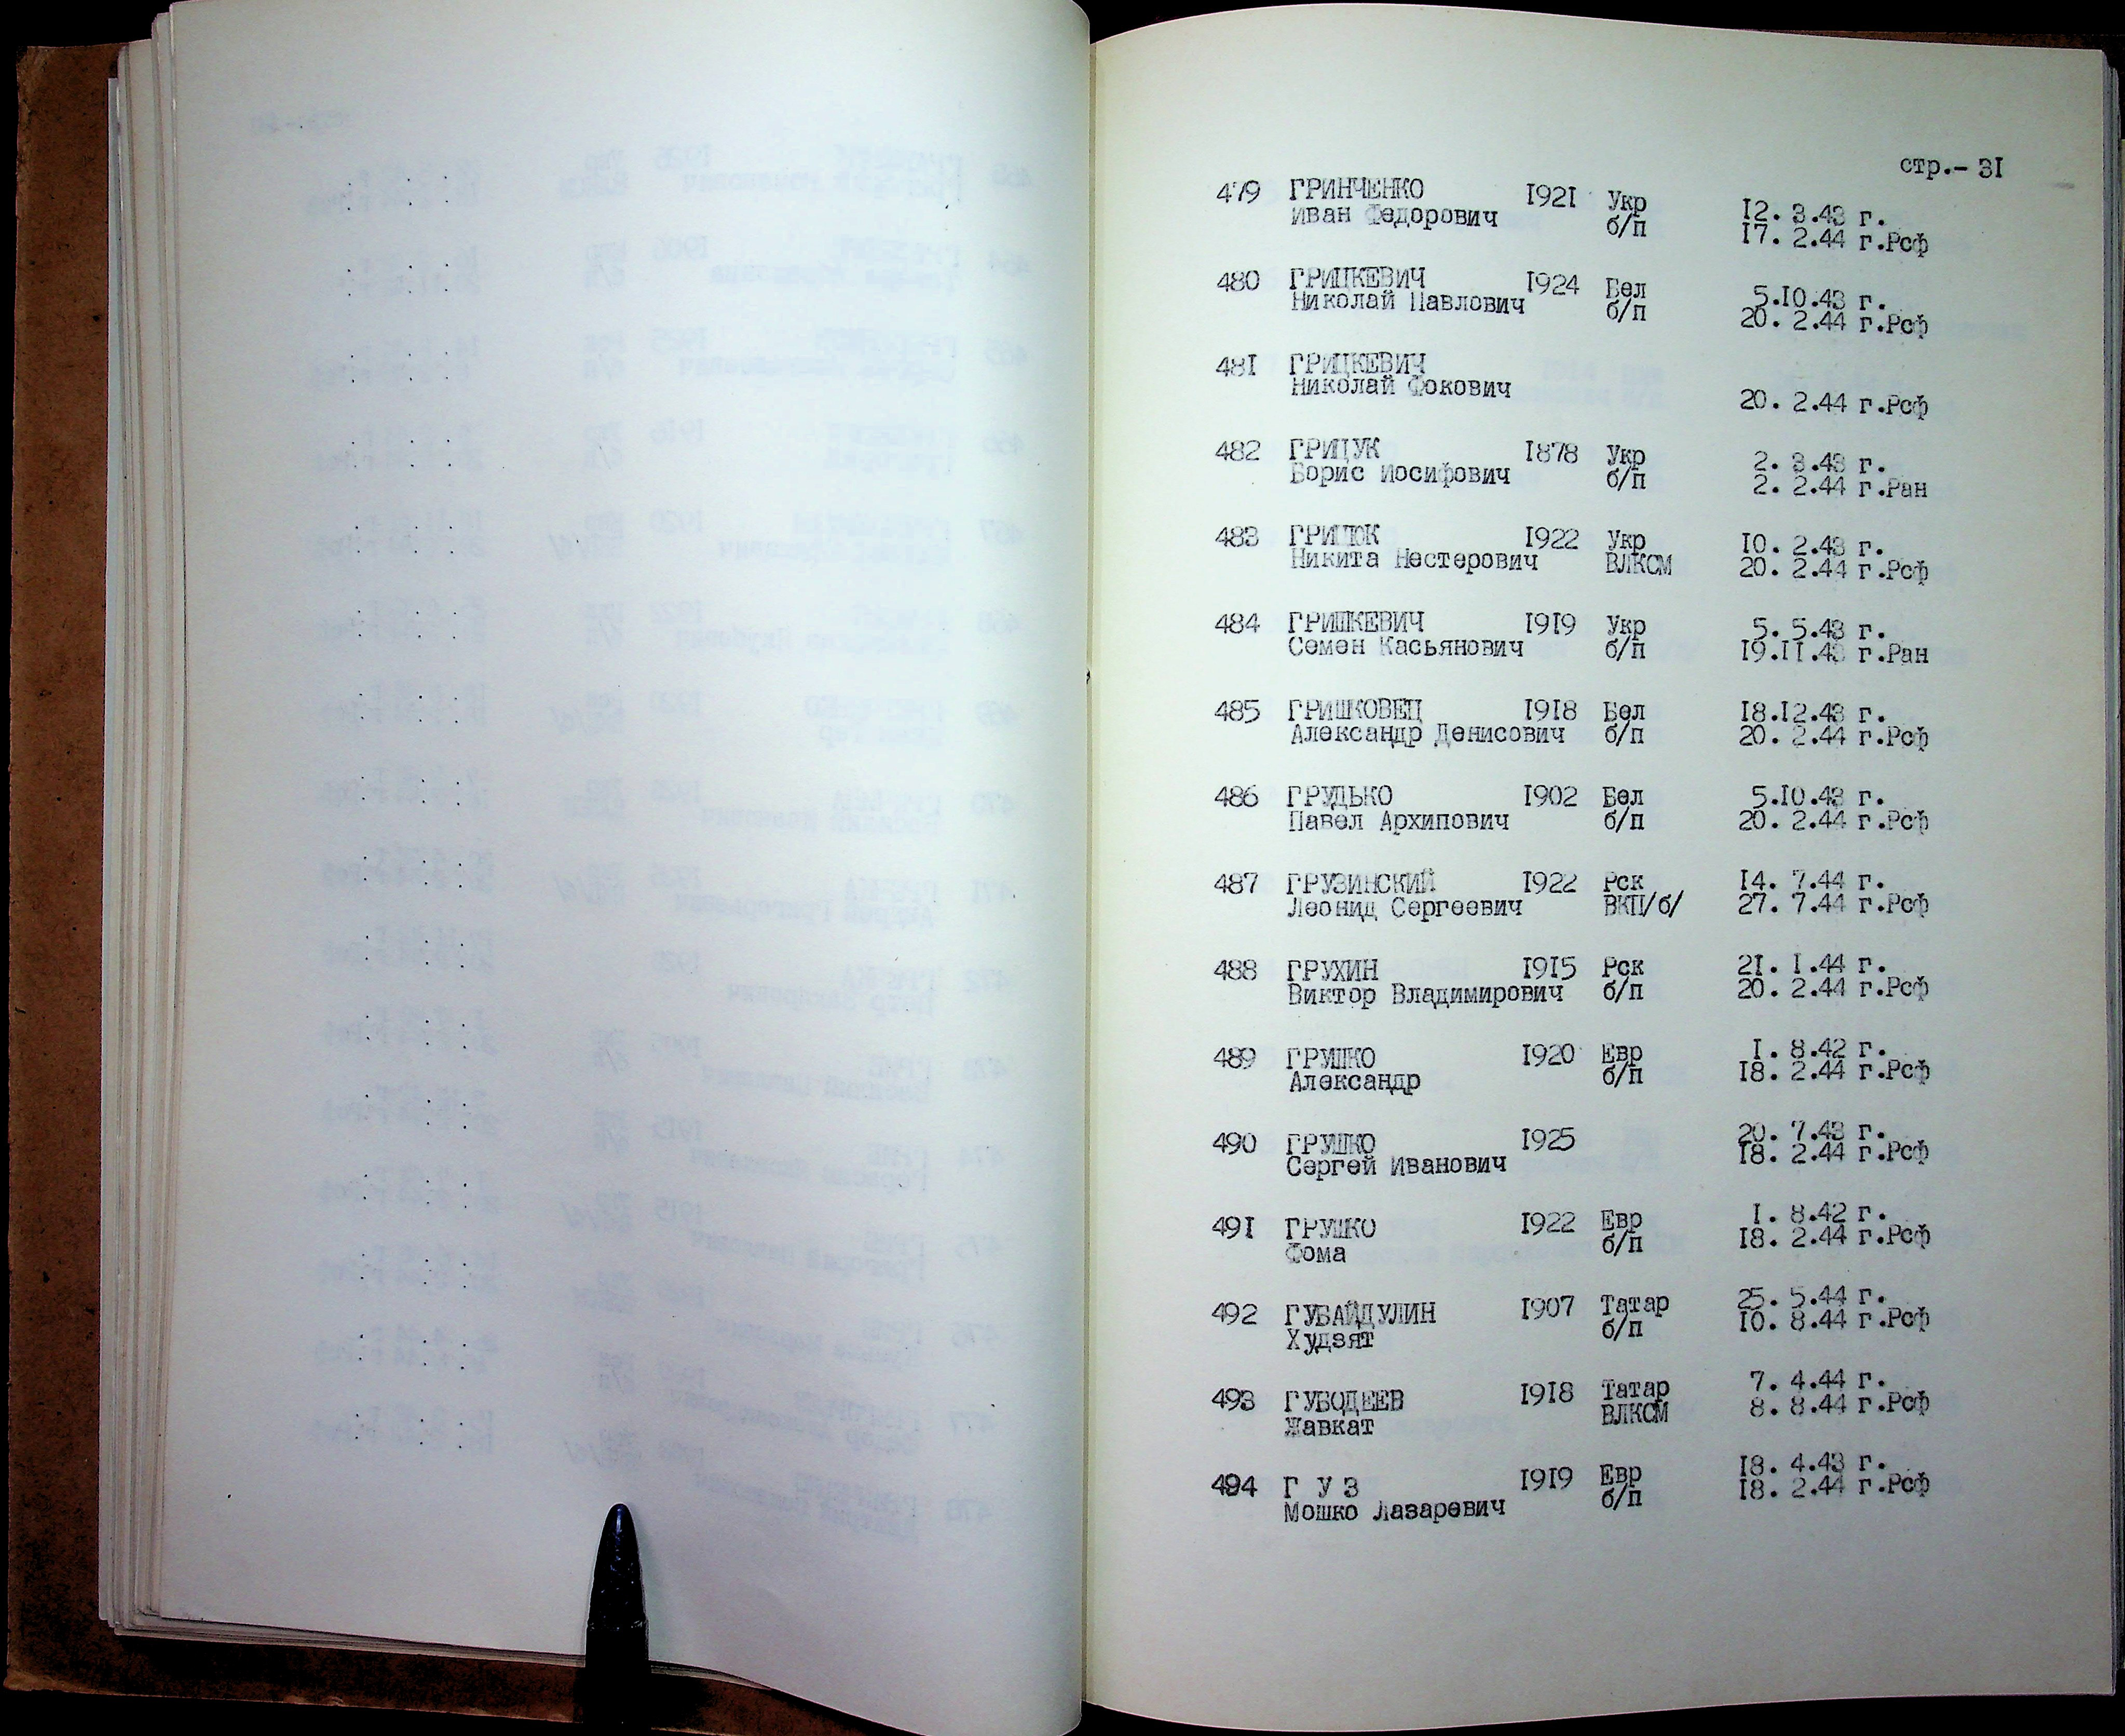 стр.- 31
479 ГРИНЧЕНКО 1921 Укр 12. 3.43 г.
Иван Федорович б/п 17. 2.44 г.Рсф
480 ГРИЦКЕВИЧ 1924 Бел 5.10.43 г.
Николай Павлович б/п 20. 2.44 г.Рсф
481 ГРИЦКЕВИЧ
Николай Фокович 20. 2.44 г.Рсф
482 ГРИЦУК 1878 Укр 2. 3.43 г.
Борис Иосифович б/п 2. 2.44 г.Ран
483 ГРИЦЮК 1922 Укр 10. 2.43 г.
Никита Нестерович ВЛКСМ 20. 2.44 г.Рсф
484 ГРИШКЕВИЧ 1919 Укр 5. 5.43 г.
Семен Касьянович б/п 19.11.43 г.Ран
485 ГРИШКОВЕЦ 1918 Бел 18.12.43 г.
Александр Денисович б/п 20. 2.44 г.Рсф
486 ГРУДЬКО 1902 Бел 5.10.43 г.
Павел Архипович б/п 20. 2.44 г.Рсф
487 ГРУЗИНСКИЙ 1922 Рск 14. 7.44 г.
Леонид Сергеевич ВКП/б/ 27. 7.44 г.Рсф
488 ГРУХИН 1915 Рск 21. 1.44 г.
Виктор Владимирович б/п 20. 2.44 г.Рсф
489 ГРУШКО 1920 Евр 1. 8.42 г.
Александр б/п 18. 2.44 г.Рсф
490 ГРУШКО 1925 20. 7.43 г.
Сергей Иванович 18. 2.44 г.Рсф
491 ГРУШКО 1922 Евр 1. 8.42 г.
Фома б/п 18. 2.44 г.Рсф
492 ГУБАЙДУЛИН 1907 Татар 25. 5.44 г.
Худзят б/п 10. 8.44 г.Рсф
493 ГУБОДЕЕВ 1918 Татар 7. 4.44 г.
Жавкат ВЛКСМ 8. 8.44 г.Рсф
494 Г У З 1919 Евр 18. 4.43 г.
Мошко Лазаревич б/п 18. 2.44 г.Рсф